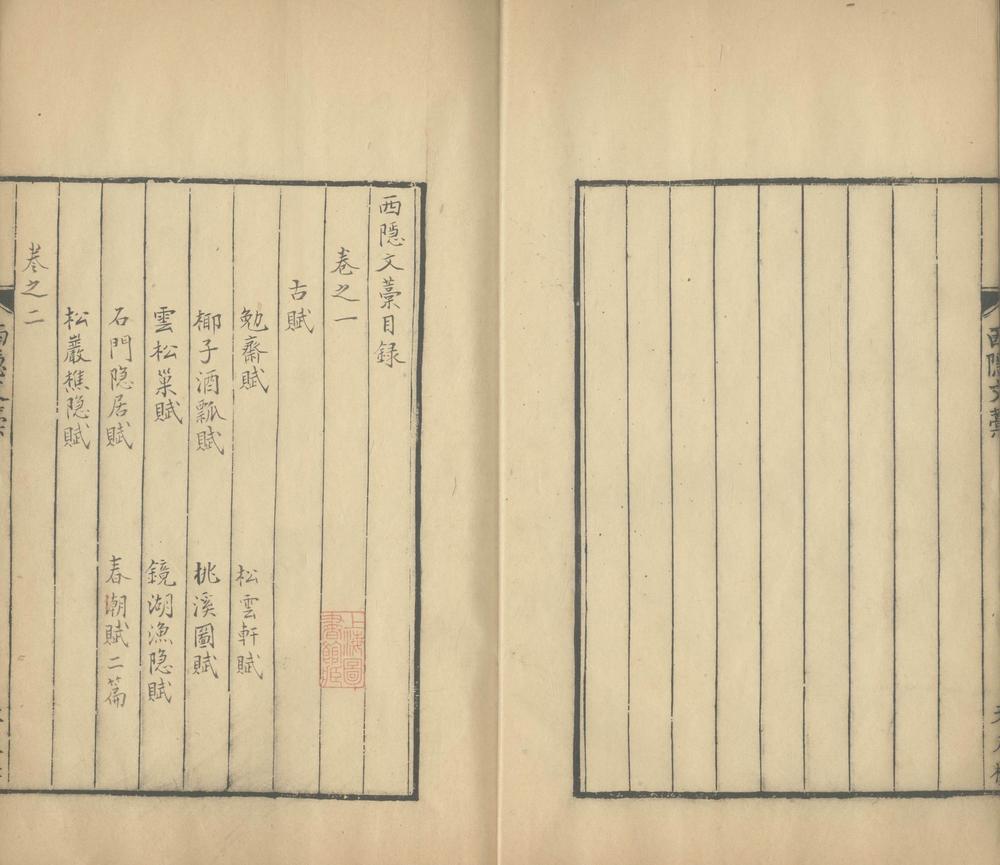 西隱文藁目録
卷之一
古賦
勉齋賦 松雲軒賦
椰子酒瓢賦 桃溪圖賦
雲松巢賦 鏡湖漁隱賦
石門隱居賦 春潮賦二篇
松巖樵隱賦
卷之二
上海圖書館藏
西隱文藁